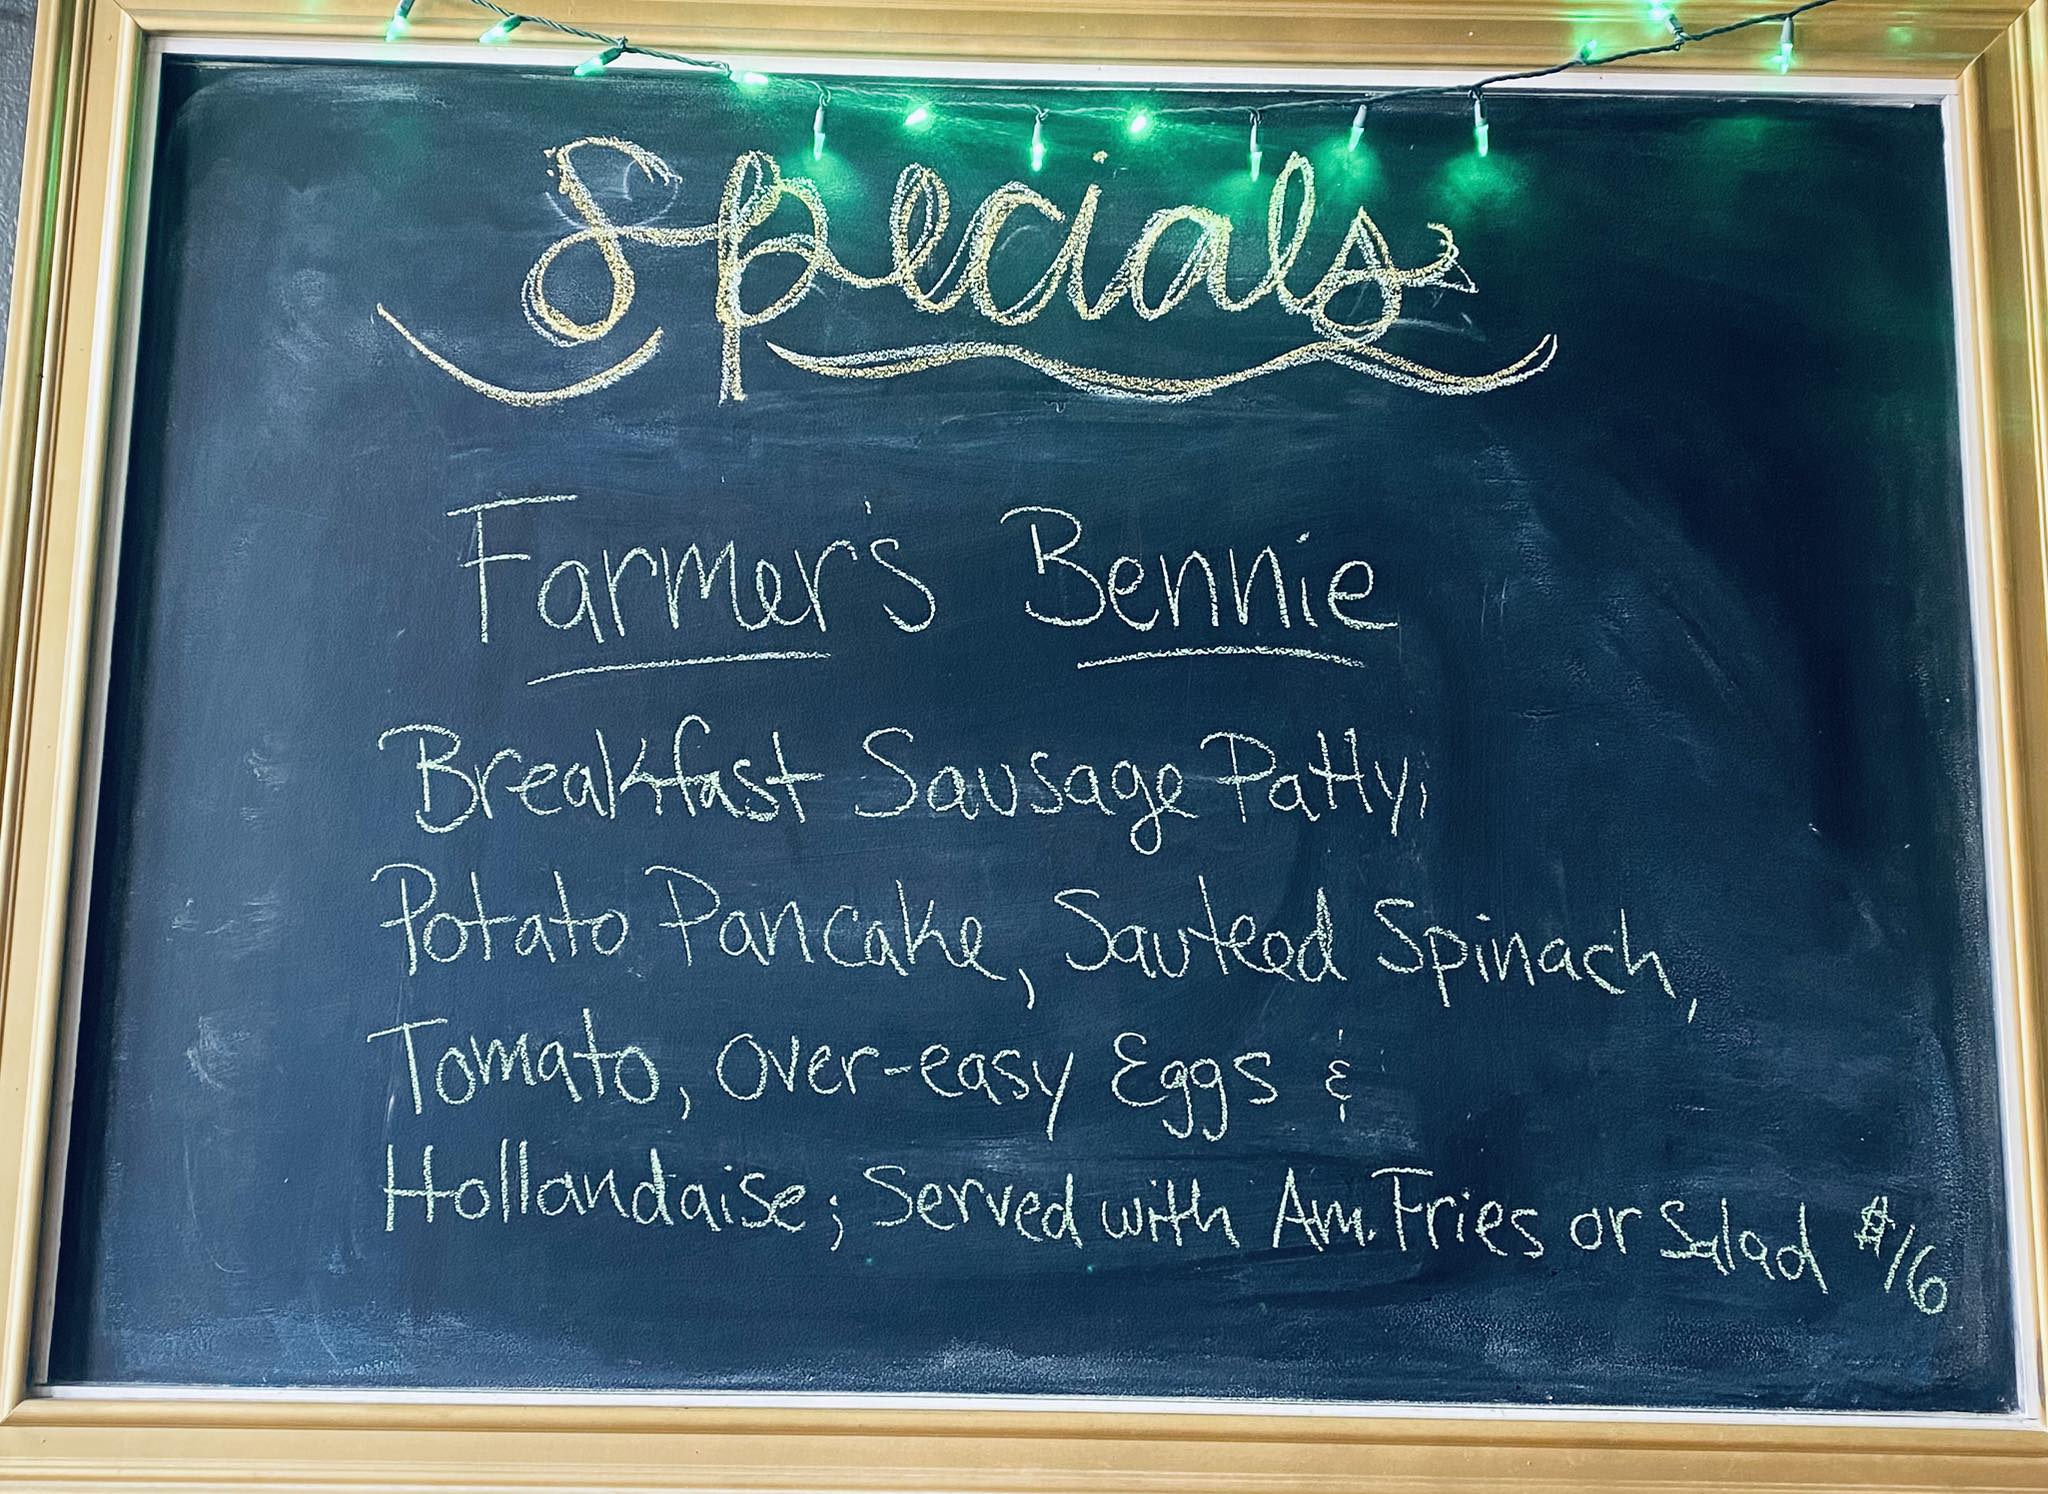 Specials
Farmer's Bennie
Breakfast Sausage Patty,
Potato Pancake, Sauteed Spinach,
Tomato, over-easy Eggs &
Hollandaise; Served with Am. Fries or Salad $16